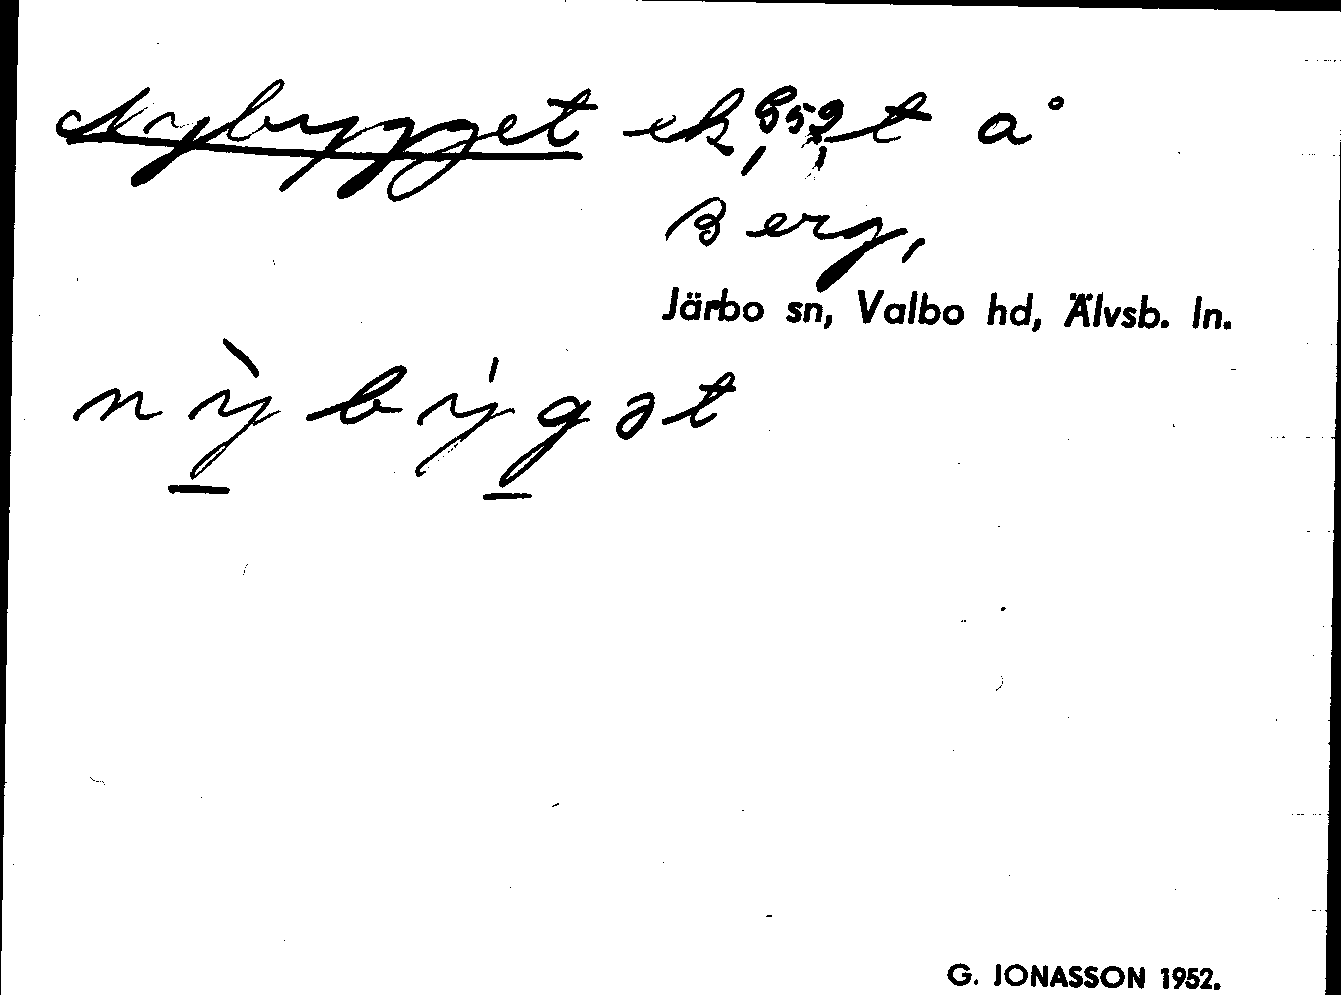 Nybygget ek, 852, t å
Berg,
Järbo sn, Valbo hd, Älvsb. ln.
nỳbýgət
G. JONASSON 1952.